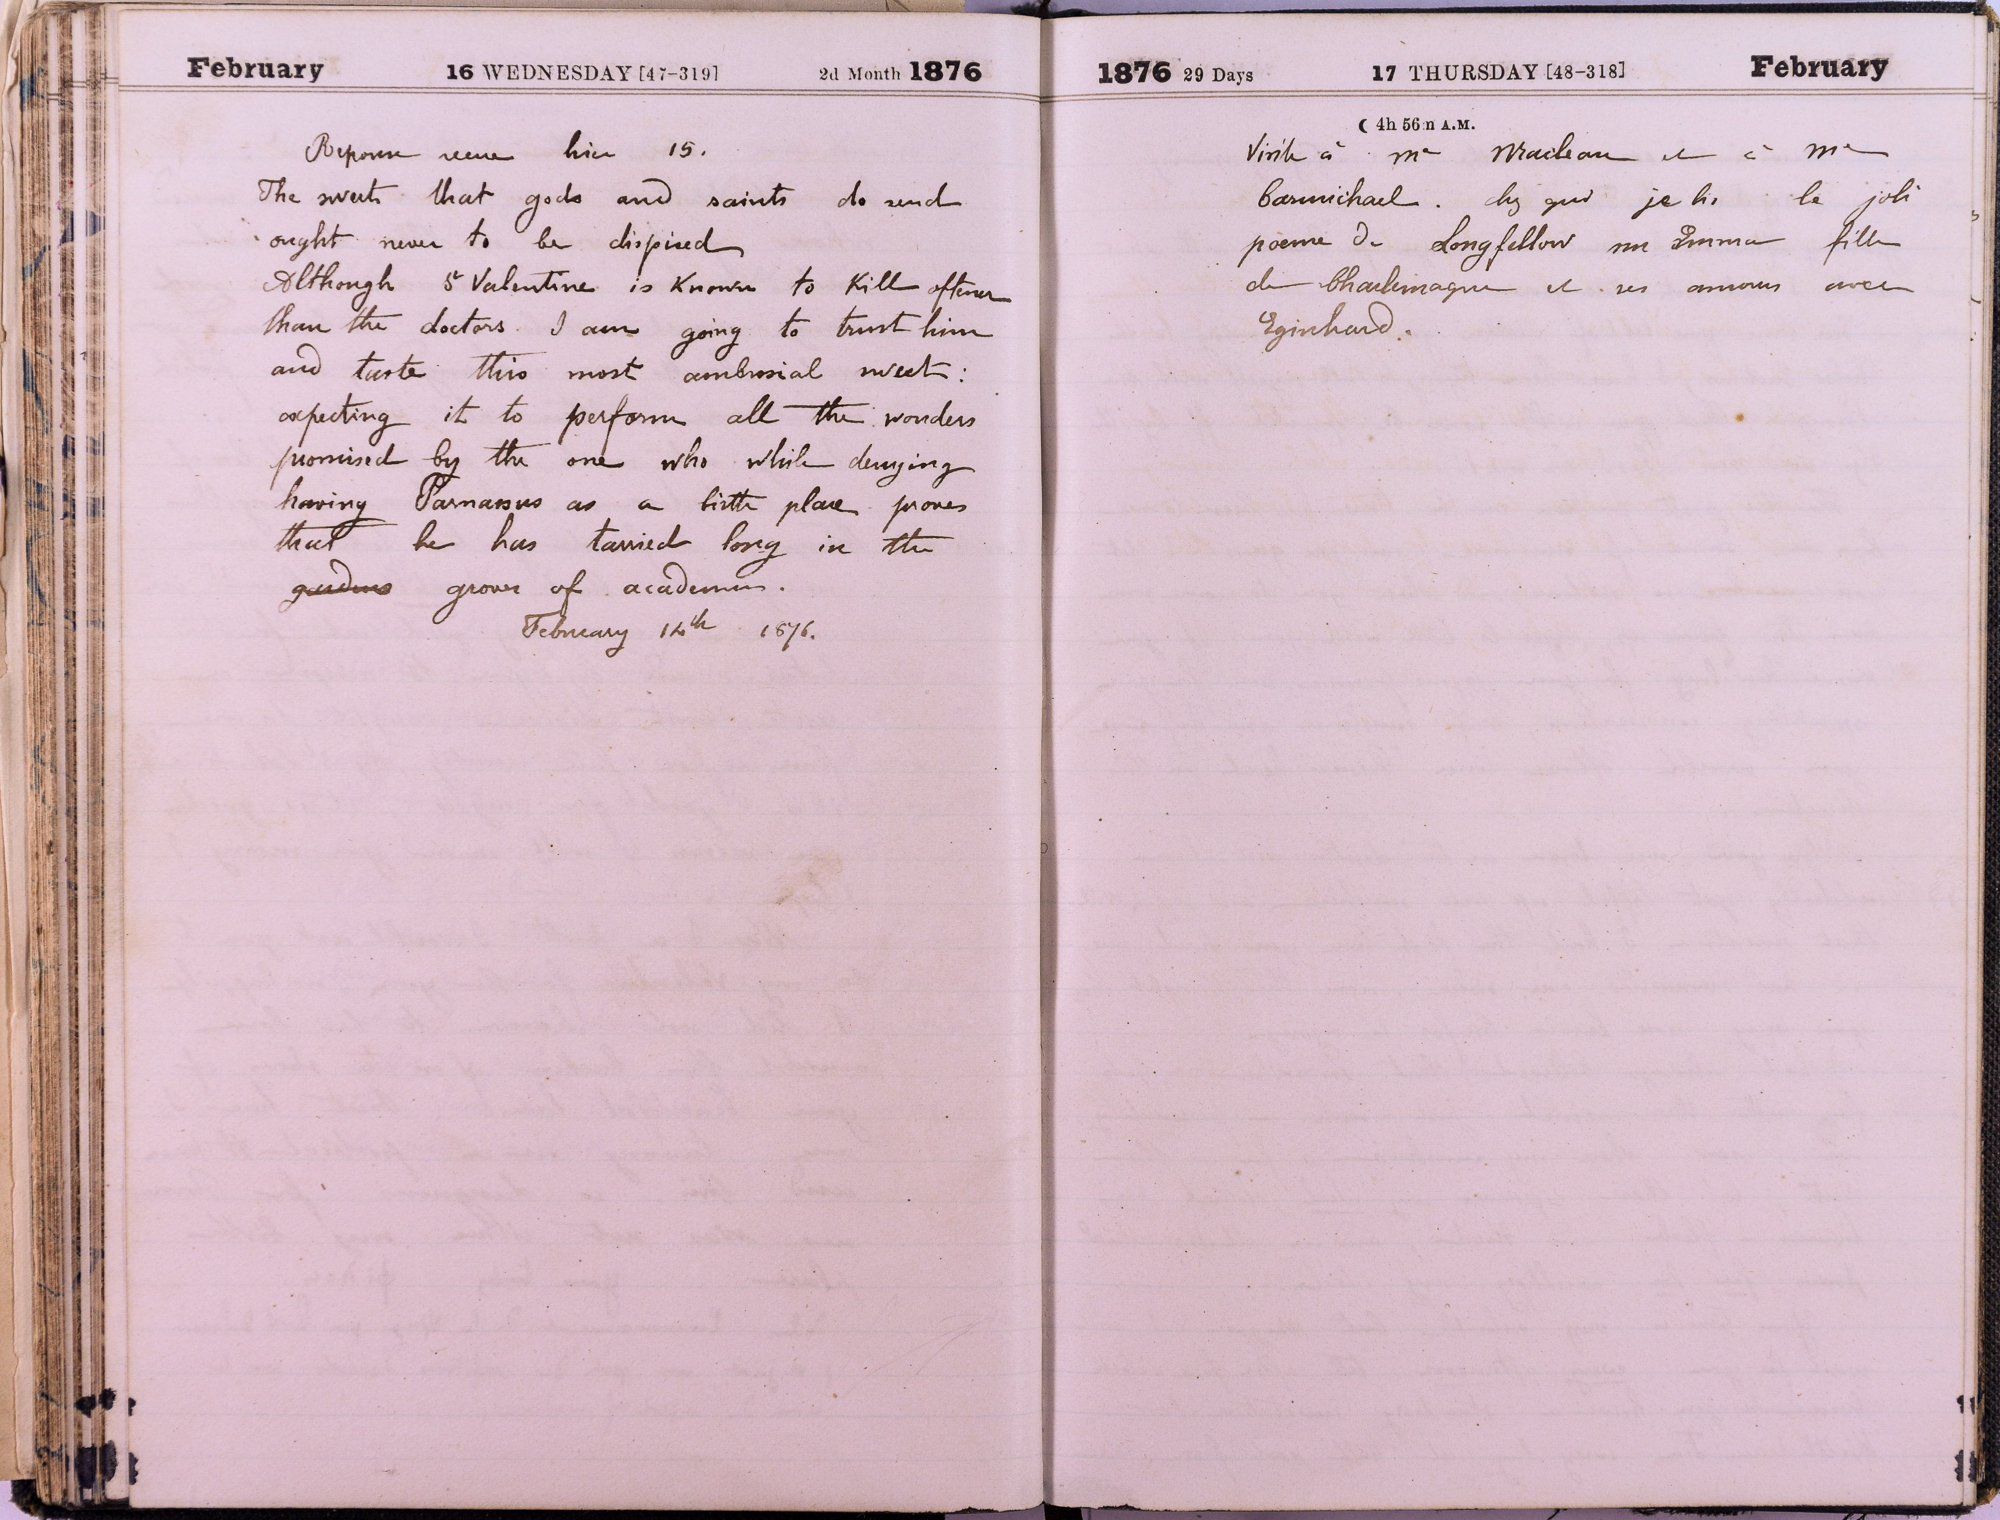 February 16 WEDNESDAY [47-319] 2d Month 1876
Reponse recue hier 15.
The sweets that gods and saints do send
ought never to be dispised
Although St Valentine is known to kill oftener
than the doctors. I am going to trust him
and taste this most ambrosial sweet:
expecting it to perform all the wonders
promised by the one who while denying
having Parnassus as a birth place proves
that he has tarried long in the
gardens groves of academus.
February 14th 1876.
1876 29 Days 17 THURSDAY [48-318] February
☾ 4h 56m A.M.
Visite à Me Macleau et à Me
Carmichael. chez qui je lis le joli
poeme de Longfellow sur Emma fille
de Charlemagne et ses amours avec
Eginhard.